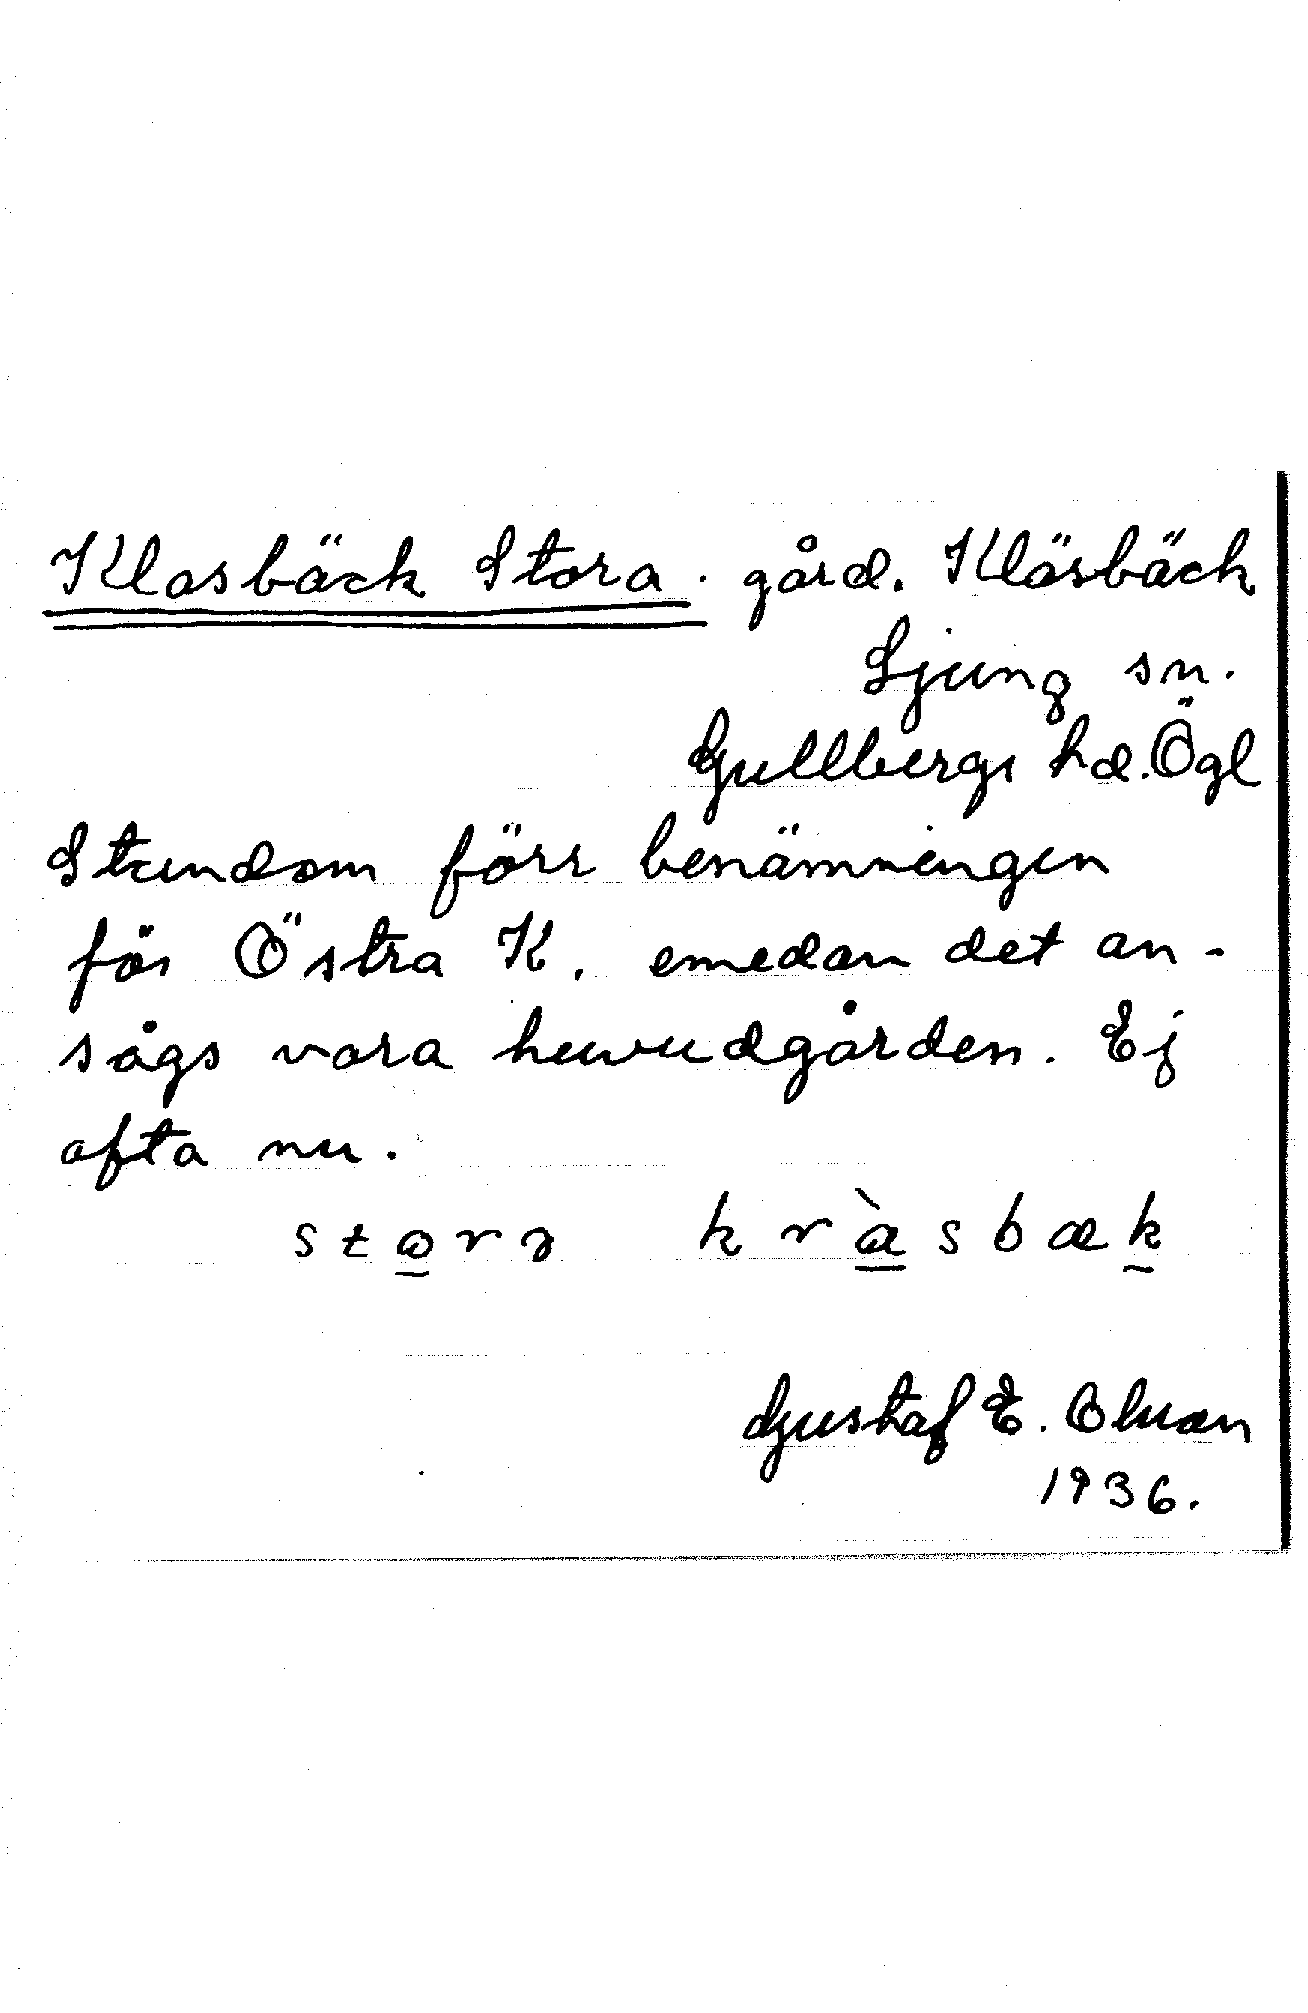 Klasbäck Stora. gård. Kläsbäck
Ljung sn.
Gullbergs hd. Ögl
Stundom förr benämningen
för Östra K. emedan det an-
sågs vara huvudgården. Ej
ofta nu.
Gustaf E. Olsson
1936.